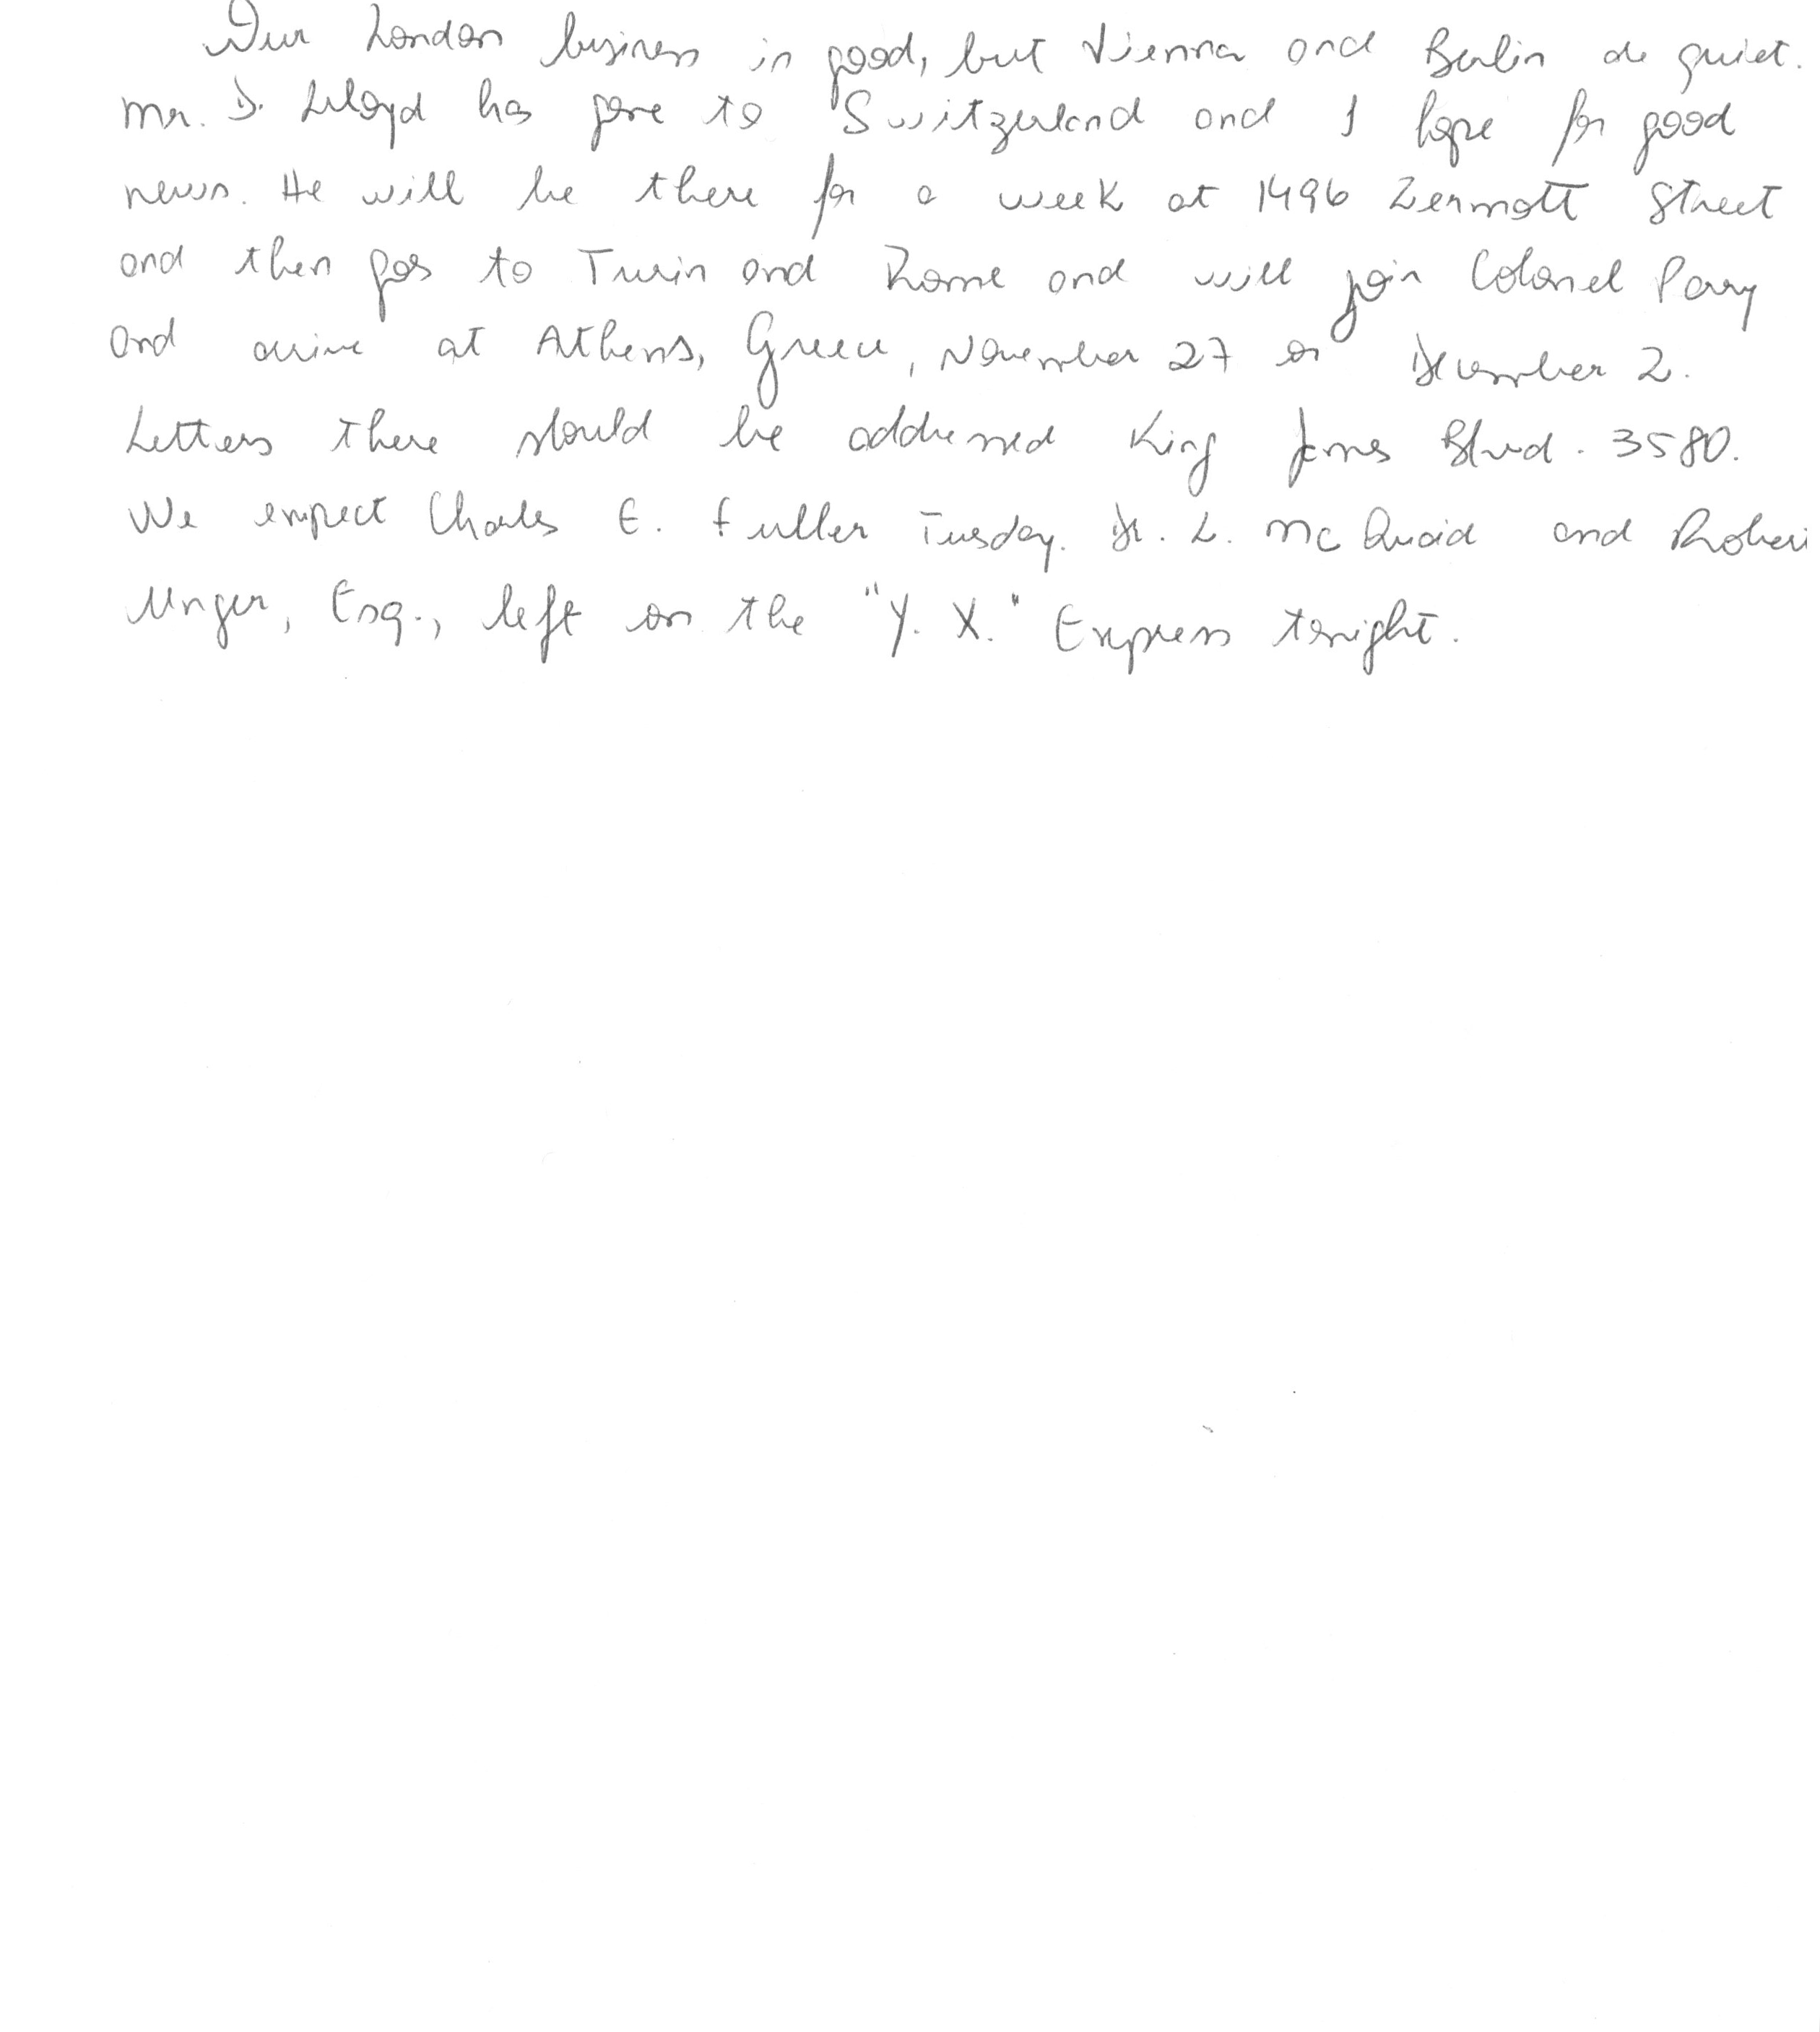 Our London business is good, but Vienna and Berlin are quiet.
Mr. D. Lloyd has gone to Switzerland and I hope for good
news. He will be there for a week at 1496 Zermott Street
and then goes to Turin and Rome and will join Colonel Parry
and arrive at Athens, Greece, November 27 or December 2.
Letters there should be addressed King James Blvd. 3580.
We expect Charles E. Fuller Tuesday. Dr. L. McQuaid and Robert
Unger, Esq., left on the "Y. X." Express tonight.